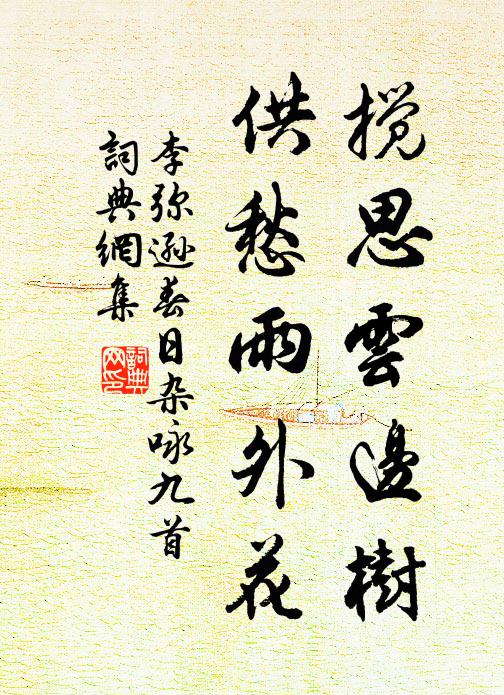 搅思雲邊樹
供愁雨外花
李弥遜春日杂咏九首
詞典網集
詞典網印